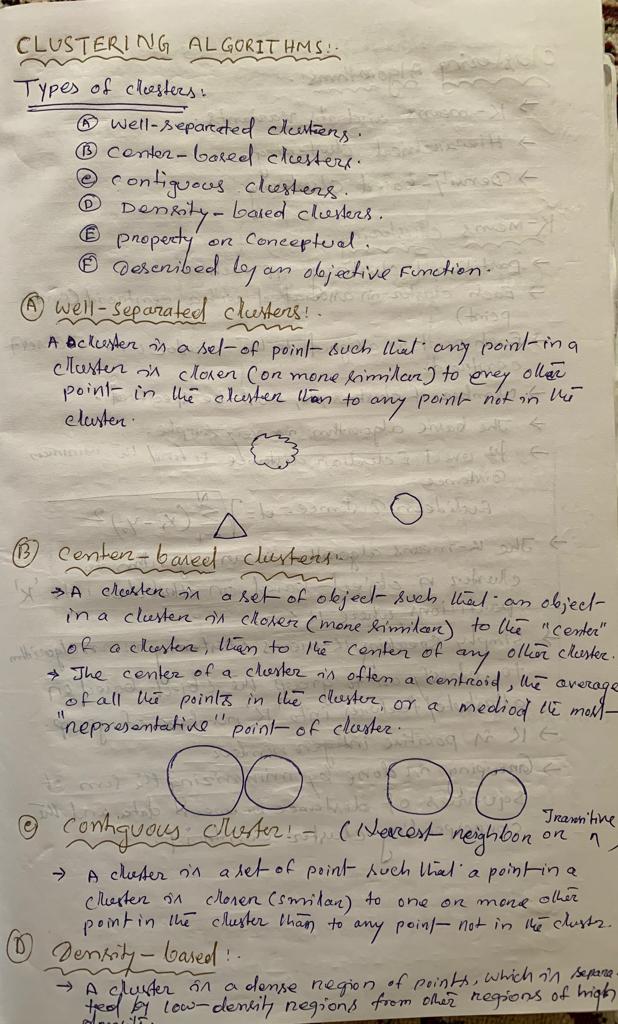 CLUSTERING ALGORITHMS:-
Types of clusters:
(A) Well-separated clusters.
(B) Center-based clusters.
(C) Contiguous clusters.
(D) Density-based clusters.
(E) Property or Conceptual.
(F) Described by an objective Function.
(A) Well-separated clusters:-
A cluster is a set of point such that any point in a
cluster is closer (or more similar) to every other
point in the cluster than to any point not in the
cluster.
(B) Center-based clusters:-
→ A cluster is a set of object such that an object
in a cluster is closer (more similar) to the "center"
of a cluster, than to the center of any other cluster.
→ The center of a cluster is often a centroid, the average
of all the points in the cluster, or a mediod the most
"representative" point of cluster.
(C) Contiguous cluster:- (Nearest neighbor or Transitive
→ A cluster is a set of point such that a point in a
cluster is closer (similar) to one or more other
point in the cluster than to any point not in the cluster.
(D) Density-based:-
→ A cluster is a dense region of points, which is separa-
ted by low-density regions from other regions of high
density.